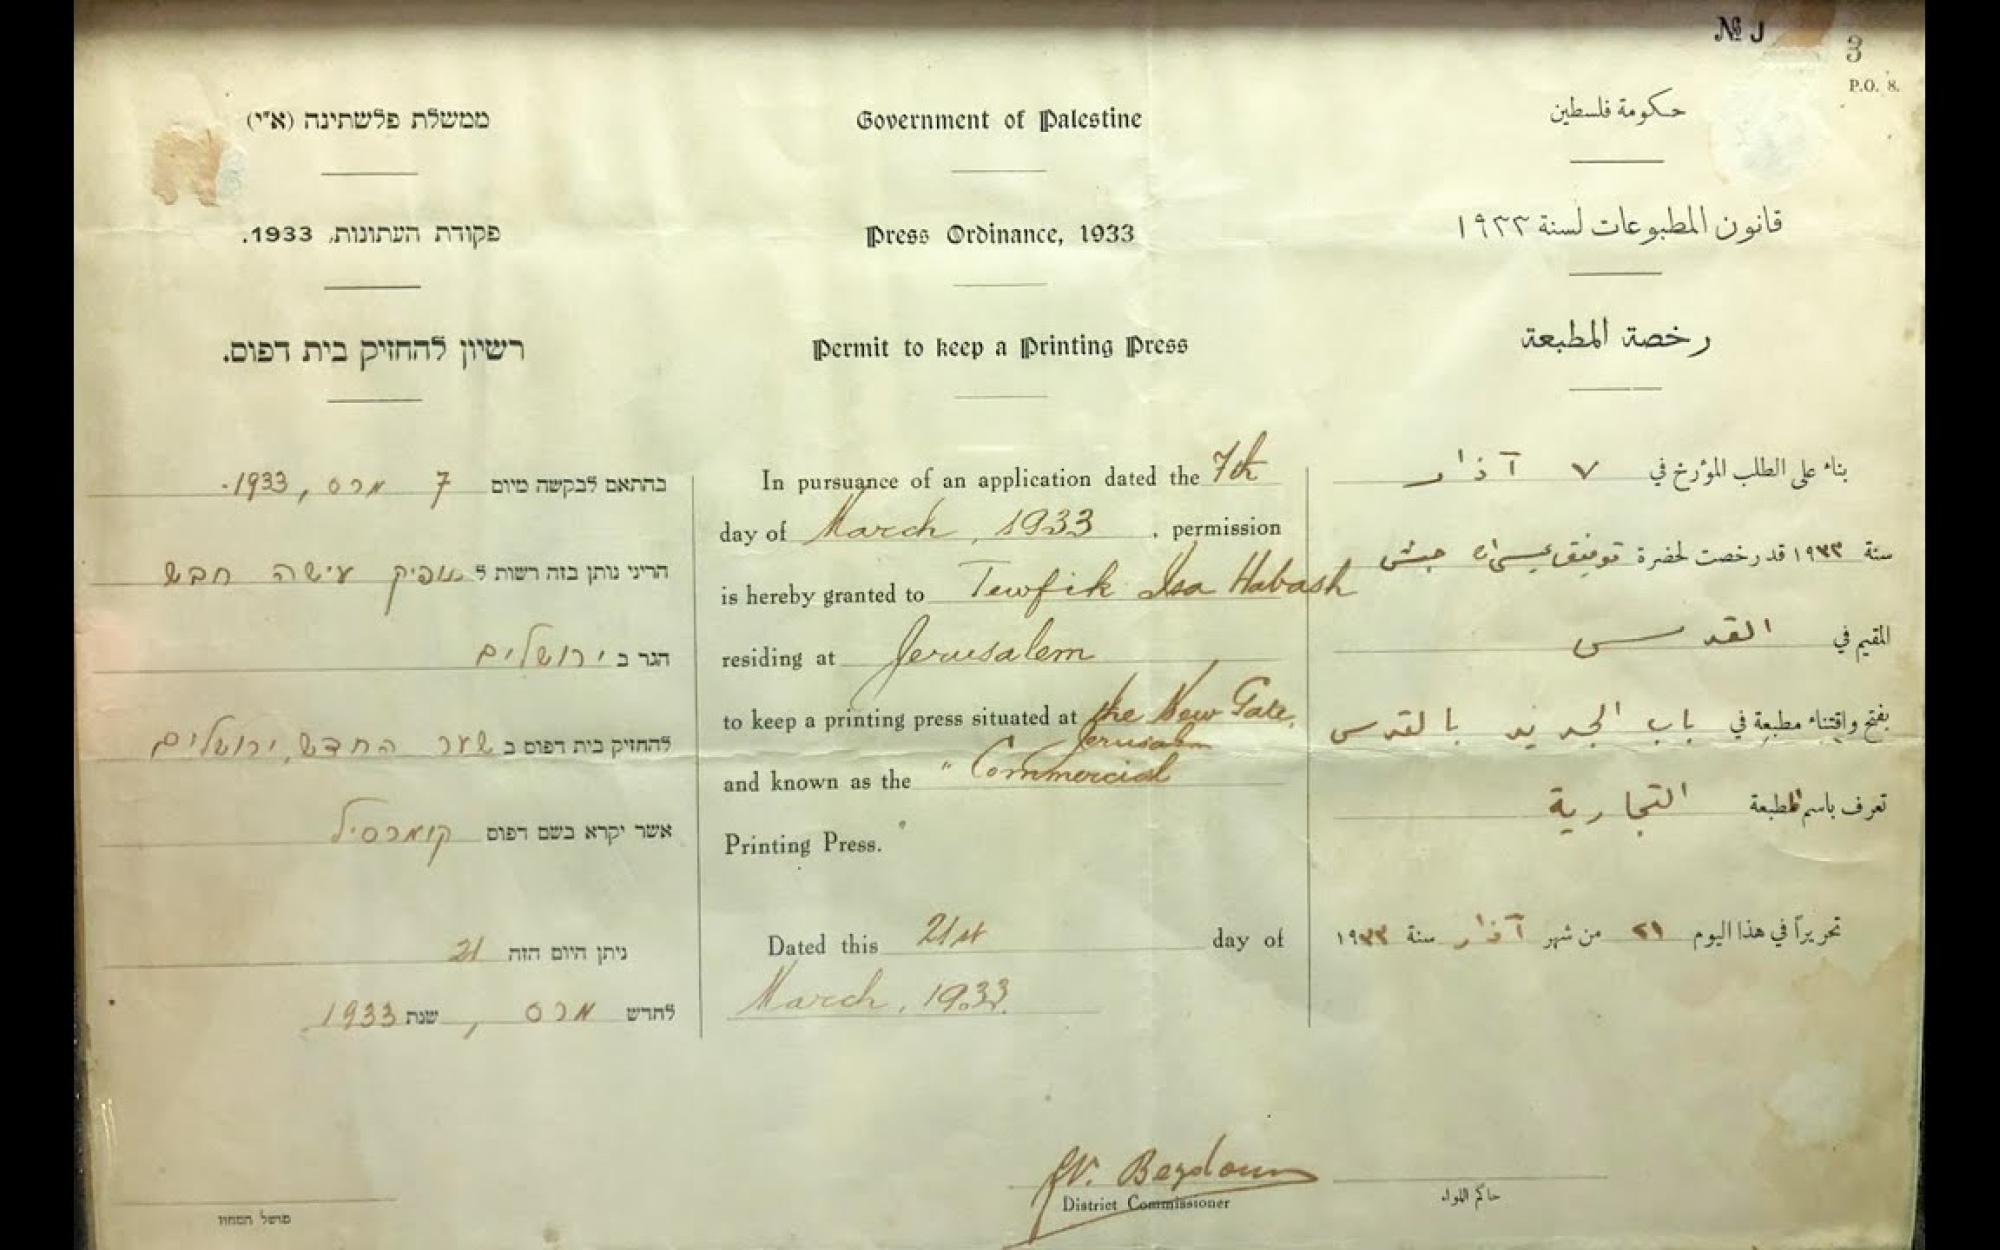 № J
3
P.O. 8.
ממשלת פלשתינה (א"י)
פקודת העתונות, 1933.
רשיון להחזיק בית דפוס.
בהתאם לבקשה מיום 7 מרס, 1933.
הריני נותן בזה רשות ל תופיק עישה חבש
הגר ב ירושלים
להחזיק בית דפוס ב שער החדש, ירושלים
אשר יקרא בשם דפוס קומרסיל
ניתן היום הזה 21
לחדש מרס, שנת 1933
מושל המחוז
Government of Palestine
Press Ordinance, 1933
Permit to keep a Printing Press
In pursuance of an application dated the 7th
day of March, 1933. permission
is hereby granted to Tewfik Isa Habash
residing at Jerusalem
to keep a printing press situated at the New Gate,
Jerusalem
and known as the "Commercial
Printing Press."
Dated this 21st day of
March, 1933.
District Commissioner
حكومة فلسطين
قانون المطبوعات لسنة ١٩٣٣
رخصة المطبعة
بناء على الطلب المؤرخ في ٧ آذار
سنة ١٩٣٣ قد رخصت لحضرة توفيق عيسى حبش
المقيم في القدس
بفتح واقتناء مطبعة في باب الجديد بالقدس
تعرف باسم المطبعة التجارية
تحريراً في هذا اليوم ٢١ من شهر آذار سنة ١٩٣٣
حاكم اللواء